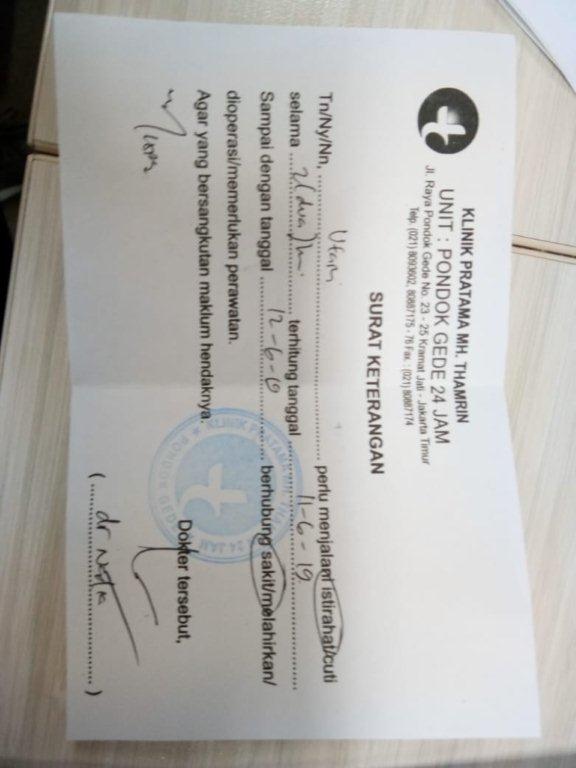 KLINIK PRATAMA MH. THAMRIN
UNIT : PONDOK GEDE 24 JAM
Jl. Raya Pondok Gede No. 23 - 25 Kramat Jati - Jakarta Timur
Telp. (021) 8093602, 80887175 - 76 Fax. : (021) 80887174
SURAT KETERANGAN
Tn/Ny/Nn, Utari perlu menjalani istirahat/cuti
selama 2 (dua) hari terhitung tanggal 11-6-19
Sampai dengan tanggal 12-6-19 berhubung sakit/melahirkan/
dioperasi/memerlukan perawatan.
Agar yang bersangkutan maklum hendaknya.
Dokter tersebut,
( dr )
KLINIK PRATAMA MH. THAMRIN
PONDOK GEDE 24 JAM